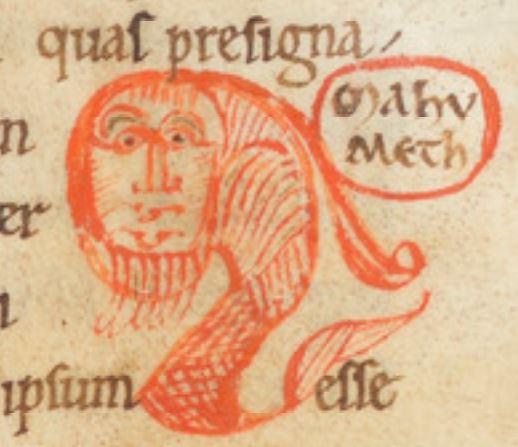 quas presigna
Mahu
Meth
n
er
ipsum esse